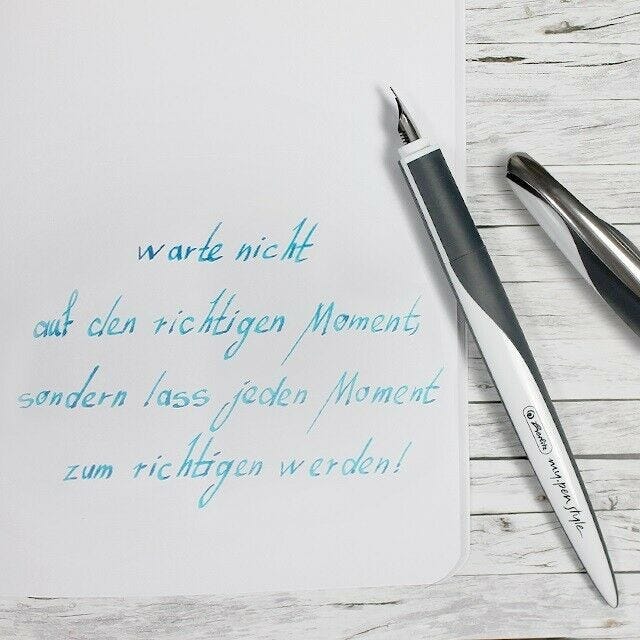 warte nicht
auf den richtigen Moment,
sondern lass jeden Moment
zum richtigen werden!
Herlitz my.pen style